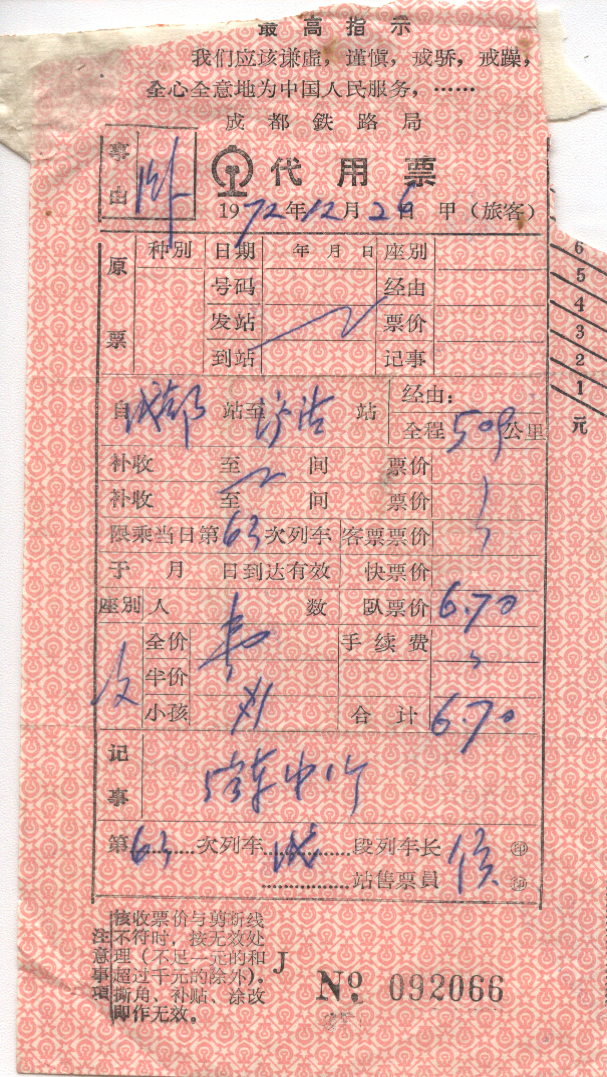 最高指示
我们应该谦虚，谨慎，戒骄，戒躁，
全心全意地为中国人民服务，……
成都鉄路局
事由 卧
代用票
1972年12月26日 甲（旅客）
原票 种别 日期 年月日 座别
号码 经由
发站 票价
到站 记事
6
5
4
3
2
1
元
自成都站至 站 经由：
全程509公里
补收 至 间 票价
补收 至 间 票价
限乘当日第63次列车 客票票价
于 月 日到达有效 快票价
座别 人 数 卧票价 6.70
全价 手续费
半价
小孩 合计 6.70
记事
第63次列车 成 段列车长 印
站售票員 印
注意事項
核收票价与剪断线
不符时，按无效处
理（不足一元的和
超过千元的除外）。
撕角、补贴、涂改
即作无效。
J
№ 092066